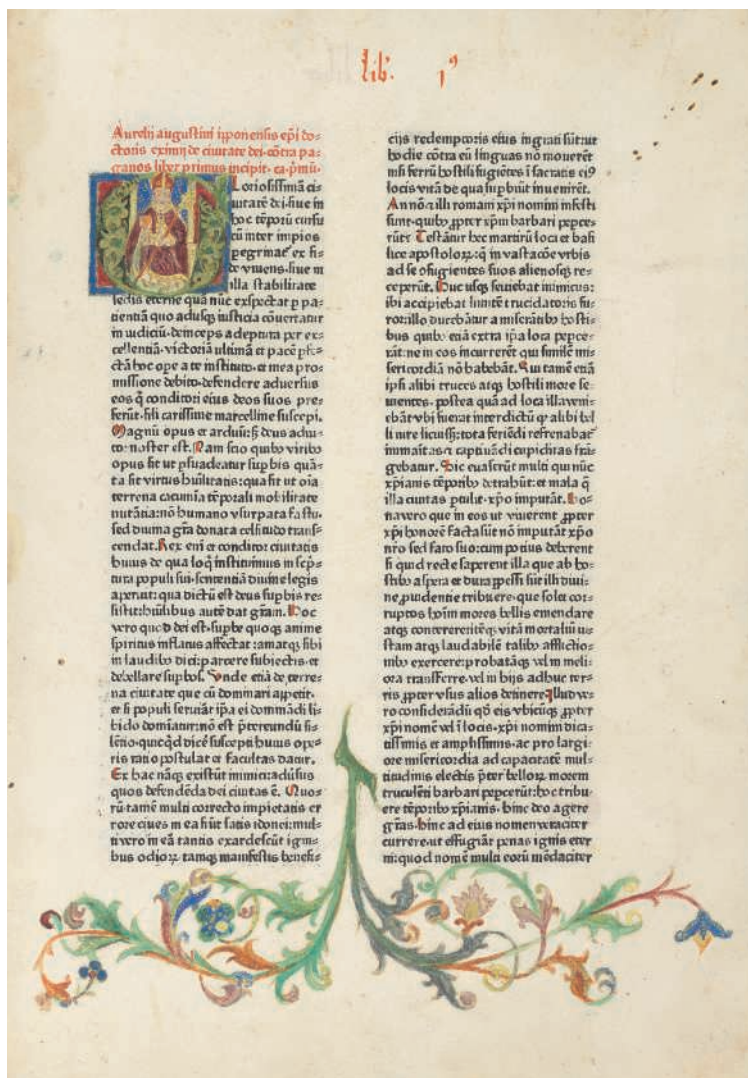 lib. i⁹
Aurelij augustini ipponensis ep̄i do-
ctoris eximij de ciuitate dei. cōtra pa-
ganos liber primus incipit. ca. p̄mū.
Gloriosissimā ci-
uitatē dei. siue in
hoc tēporū cursu
cū inter impios
peregrinat̄ ex fi-
de viuens. siue in
illa stabilitate
sedis eterne quā nūc exspectat p̱ pa-
tientiā quo adusq; iusticia cōuertatur
in iudiciū. deinceps adeptura per ex-
cellentiā. victoriā ultimā et pacē p̱fe-
ctā hoc opere a te instituto. et mea pro-
missione debito. defendere aduersus
eos q̄ conditori eius deos suos pre-
ferūt. fili carissime marcelline suscepi.
Magnū opus et arduū: s; deus adiu-
tor noster est. Nam scio quibꝰ viribꝰ
opus sit ut p̱suadeatur suꝑbis quā-
ta sit virtus hūilitatis: qua fit ut oīa
terrena cacumīa tēporali mobilitate
nutātia: nō humano vsurpata fastu.
sed diuina gr̄a donata celsitudo trans-
cendat. Rex enī et conditor ciuitatis
huius de qua loq̄ instituimus in sc̄p-
tura populi sui. sententiā diuine legis
aperuit: qua dictū est deus suꝑbis re-
sistit: hūilibus autē dat gr̄am. Hoc
vero quod dei est. suꝑbe quoq; anime
spiritus inflatus affectat: amatq; sibi
in laudibꝰ dici: parcere subiectis. et
debellare suꝑbos. Vnde etiā de terre-
na ciuitate que cū dominari appetit.
et si populi seruiāt ip̄a ei dominādi li-
bido domīatur: nō est p̄tereundū si-
lētio. quicq̄d dicē suscepti huius ope-
ris ratio postulat et facultas datur.
Ex hac nāq; existūt inimici: aduersus
quos defendēda dei ciuitas ē. Quo-
rū tamē multi correcto impietatis er-
rore ciues in ea fiūt satis idonei: mul-
ti vero in eā tantis exardescūt igni-
bus odioꝝ. tamq; manifestis benefi-
cijs redemptoris eius ingrati sūt: ut
hodie cōtra eū linguas nō mouerēt
nisi ferrū hostili fugiētes ī sacratis ei⁹
locis vitā de qua suꝑbiūt inuenirēt.
An nō ⁊ illi romani xp̄i nomini infesti
sunt. quibꝰ ꝓpter xp̄m barbari peper-
cerūt? Testātur hec martirū loca et basi
lice apostoloꝝ: q̄ in vastatōe vrbis
ad se ɔfugientes suos alienosq; re-
ceperūt. Huc usq; seuiebat inimicus:
ibi accipiebat limitē trucidatoris fu-
ror: illo ducebātur a miserātibꝰ hosti-
bus quibꝰ etiā extra ip̄a loca peper-
cerāt: ne in eos incurrerēt qui similē mi-
sericordiā nō habebāt. Qui tamē etiā
ipsi alibi truces atq; hostili more se-
uientes. postea quā ad loca illa veni-
ebāt vbi fuerat interdictū qd alibi bel
li iure licuiss;: tota feriēdi refrenabat̄
immaītas ⁊ captiuādi cupiditas frā-
gebatur. Sic euaserūt multi qui nūc
xp̄ianis tēporibꝰ detrahūt: et mala q̄
illa ciuitas ꝑtulit. xp̄o imputāt. Bo-
na vero que in eos ut viuerent ꝓpter
xp̄i honorē facta sūt nō imputāt xp̄o
nr̄o sed fato suo: cum potius deberent
si quid recte saperent illa que ab ho-
stibꝰ aspera et dura ꝑpessi sūt illi diui-
ne ꝓuidentie tribuere. que solet cor-
ruptos hoīm mores bellis emendare
atq; conterere: itēq; vitā mortaliū iu-
stam atq; laudabilē talibꝰ afflictio-
nibꝰ exercere: probatāq; vel in meli-
ora transferre. vel in hijs adhuc ter-
ris ꝓpter vsus alios detinere. Illud ve-
ro considerādū qd eis vbicūq; ꝓpter
xp̄i nomē vel ī locis. xp̄i nomini dica-
tissimis et amplissimis. ac pro largi-
ore misericordia ad capacitatē mul-
titudinis electis p̄ter belloꝝ morem
truculēti barbari pepercerūt: hoc tribu-
ere tēporibꝰ xp̄ianis. hinc deo agere
gr̄as. hinc ad eius nomen veraciter
currere. ut effugiāt penas ignis eter
ni: quod nomē multi eorū mēdaciter